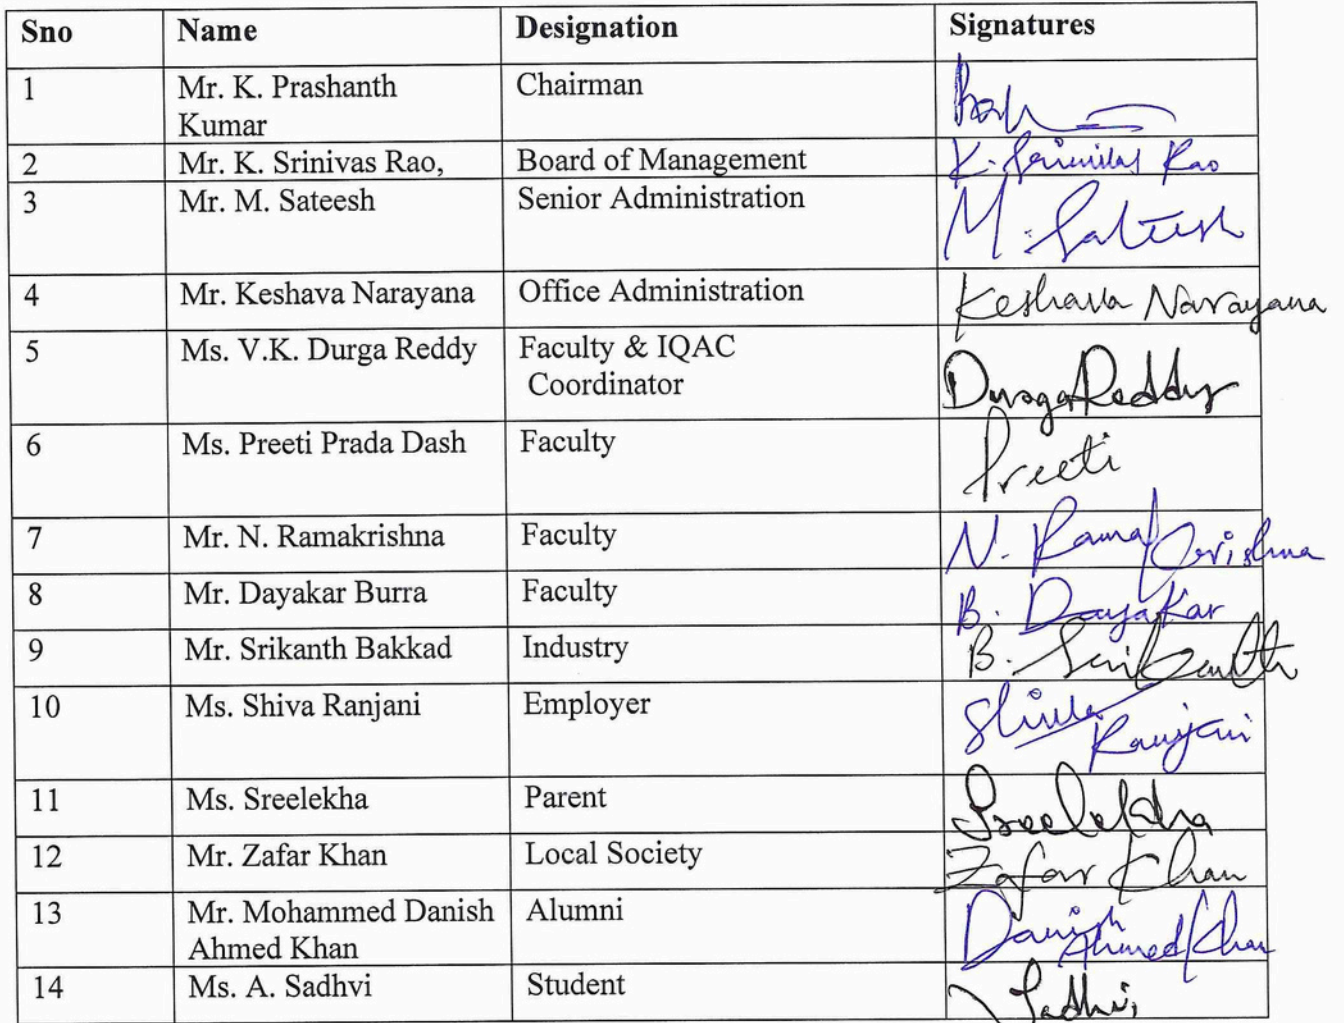 Sno Name Designation Signatures
1 Mr. K. Prashanth Chairman
Kumar
2 Mr. K. Srinivas Rao, Board of Management K. Srinivas Rao
3 Mr. M. Sateesh Senior Administration M. Sateesh
4 Mr. Keshava Narayana Office Administration Keshava Narayana
5 Ms. V.K. Durga Reddy Faculty & IQAC
Coordinator DurgaReddy
6 Ms. Preeti Prada Dash Faculty Preeti
7 Mr. N. Ramakrishna Faculty N. Rama Krishna
8 Mr. Dayakar Burra Faculty B. Dayakar
9 Mr. Srikanth Bakkad Industry B. Srikanth
10 Ms. Shiva Ranjani Employer Shiva
Ranjani
11 Ms. Sreelekha Parent Sreelekha
12 Mr. Zafar Khan Local Society Zafar Khan
13 Mr. Mohammed Danish Alumni Danish
Ahmed Khan Ahmed Khan
14 Ms. A. Sadhvi Student Sadhvi